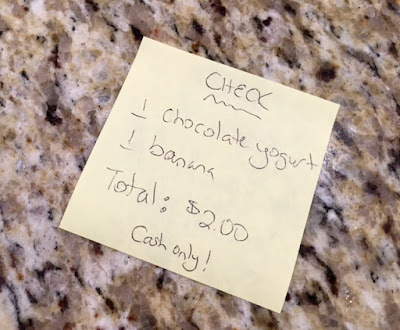 CHECK
1 chocolate yogurt
1 banana
Total: $2.00
Cash only!